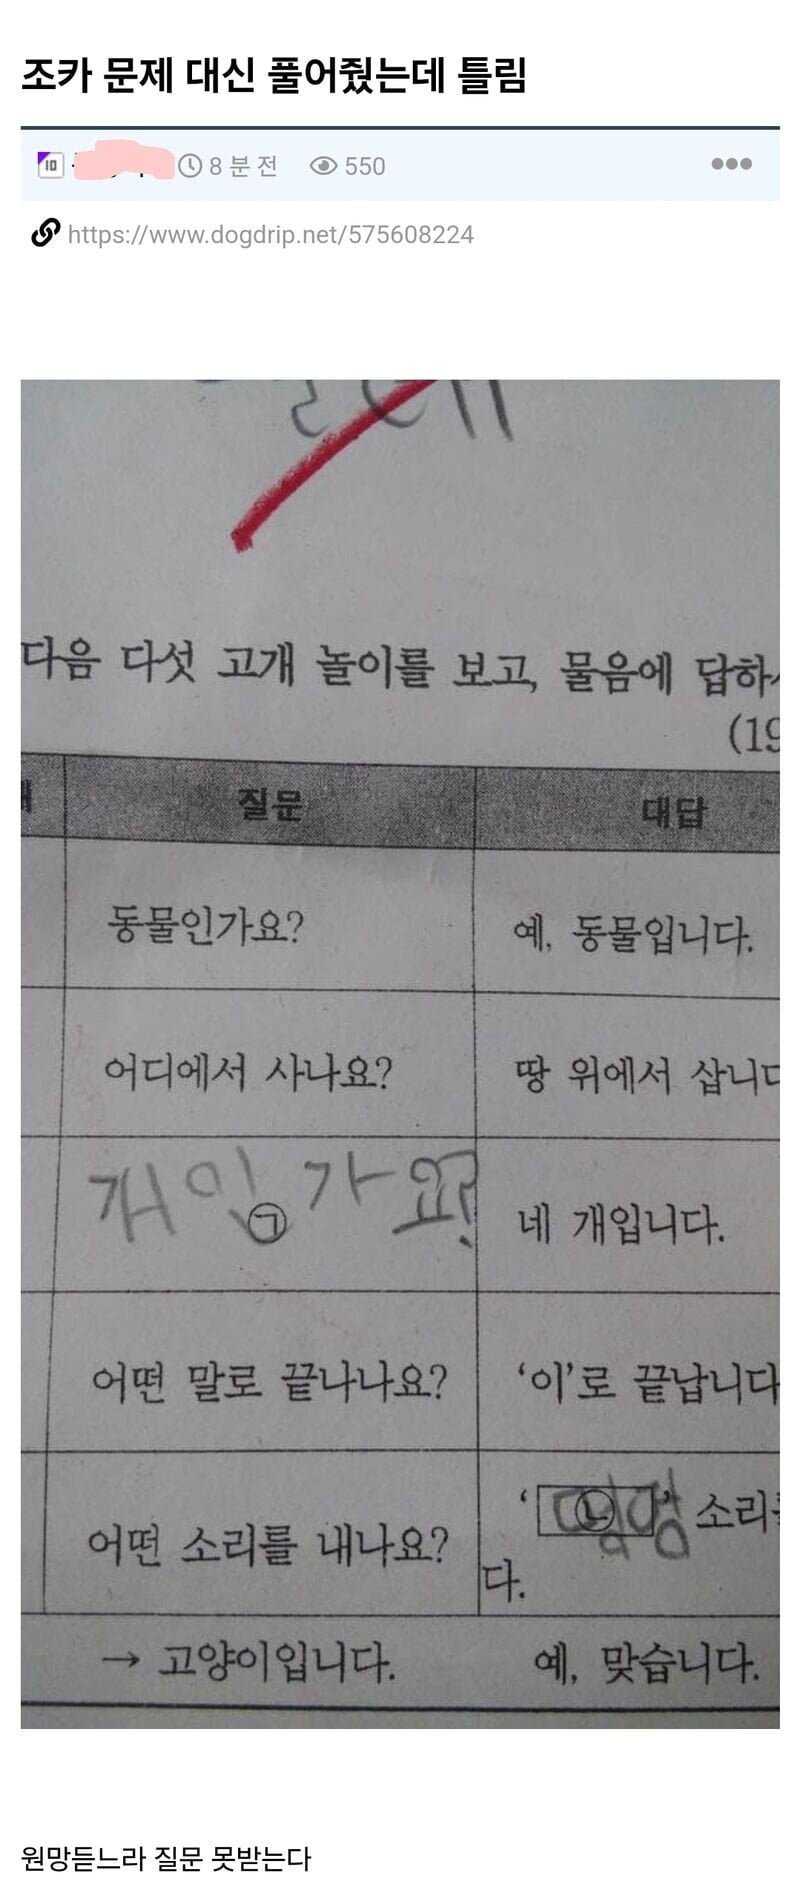 조카 문제 대신 풀어줬는데 틀림
10
8 분 전 550
https://www.dogdrip.net/575608224
다음 다섯 고개 놀이를 보고, 물음에 답하
(19
질문 대답
동물인가요? 예, 동물입니다.
어디에서 사나요? 땅 위에서 삽니다
개인가요? 네 개입니다.
㉠
어떤 말로 끝나나요? ‘이’로 끝납니다
어떤 소리를 내나요? ‘㉡’ 소리를
다.
→ 고양이입니다. 예, 맞습니다.
원망듣느라 질문 못받는다